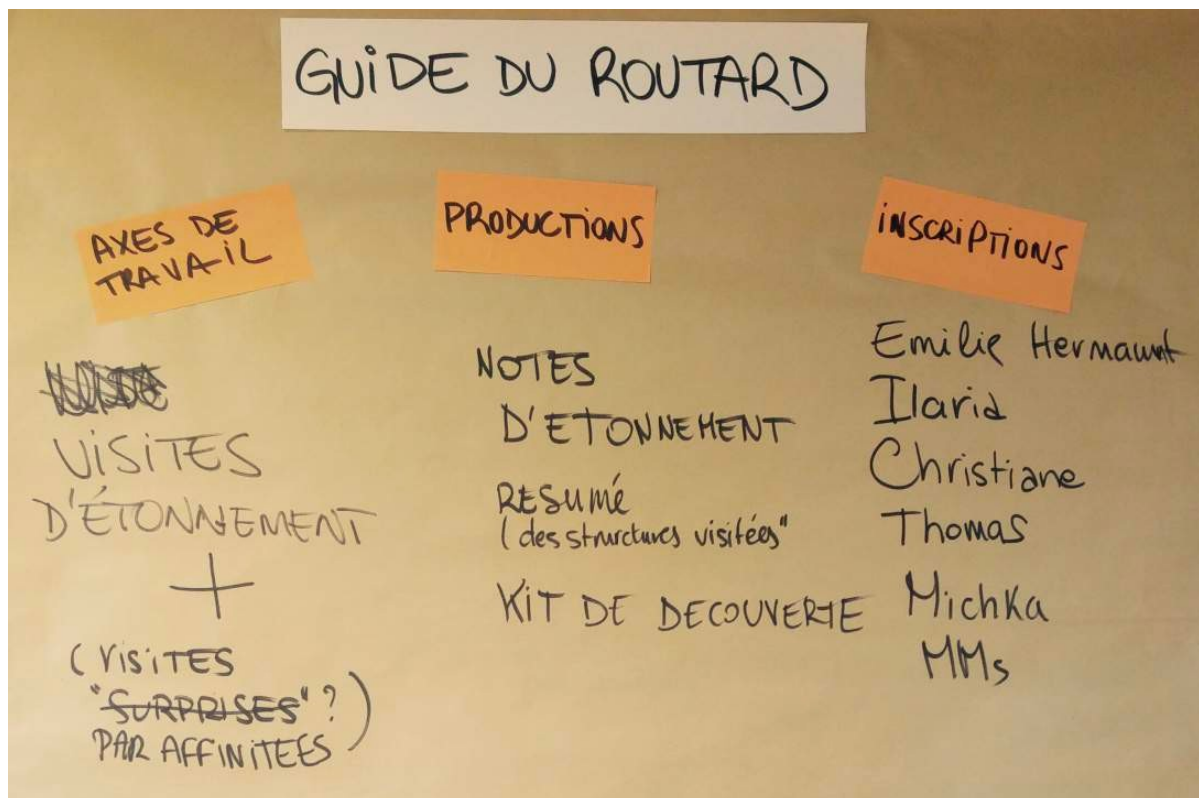 GUIDE DU ROUTARD
AXES DE
TRAVAIL
VISITES
D'ÉTONNEMENT
+
(VISITES
"SURPRISES"?)
PAR AFFINITEES
PRODUCTIONS
NOTES
D'ETONNEMENT
RESUMÉ
(des structures visitées"
KIT DE DECOUVERTE
INSCRIPTIONS
Emilie
Ilaria
Christiane
Thomas
Michka
MMs